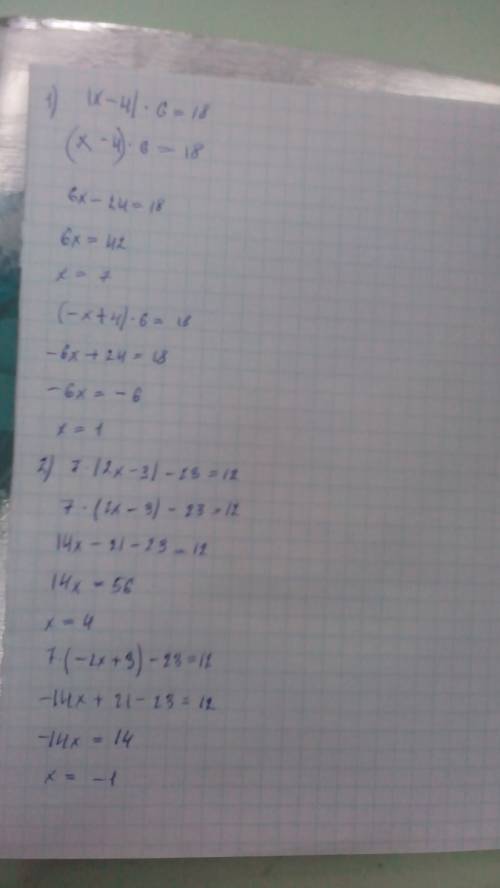 1) |x-4|·6=18
(x-4)·6=18
6x-24=18
6x=42
x=7
(-x+4)·6=18
-6x+24=18
-6x=-6
x=1
2) 7·|2x-3|-23=12
7·(2x-3)-23=12
14x-21-23=12
14x=56
x=4
7·(-2x+3)-23=12
-14x+21-23=12
-14x=14
x=-1